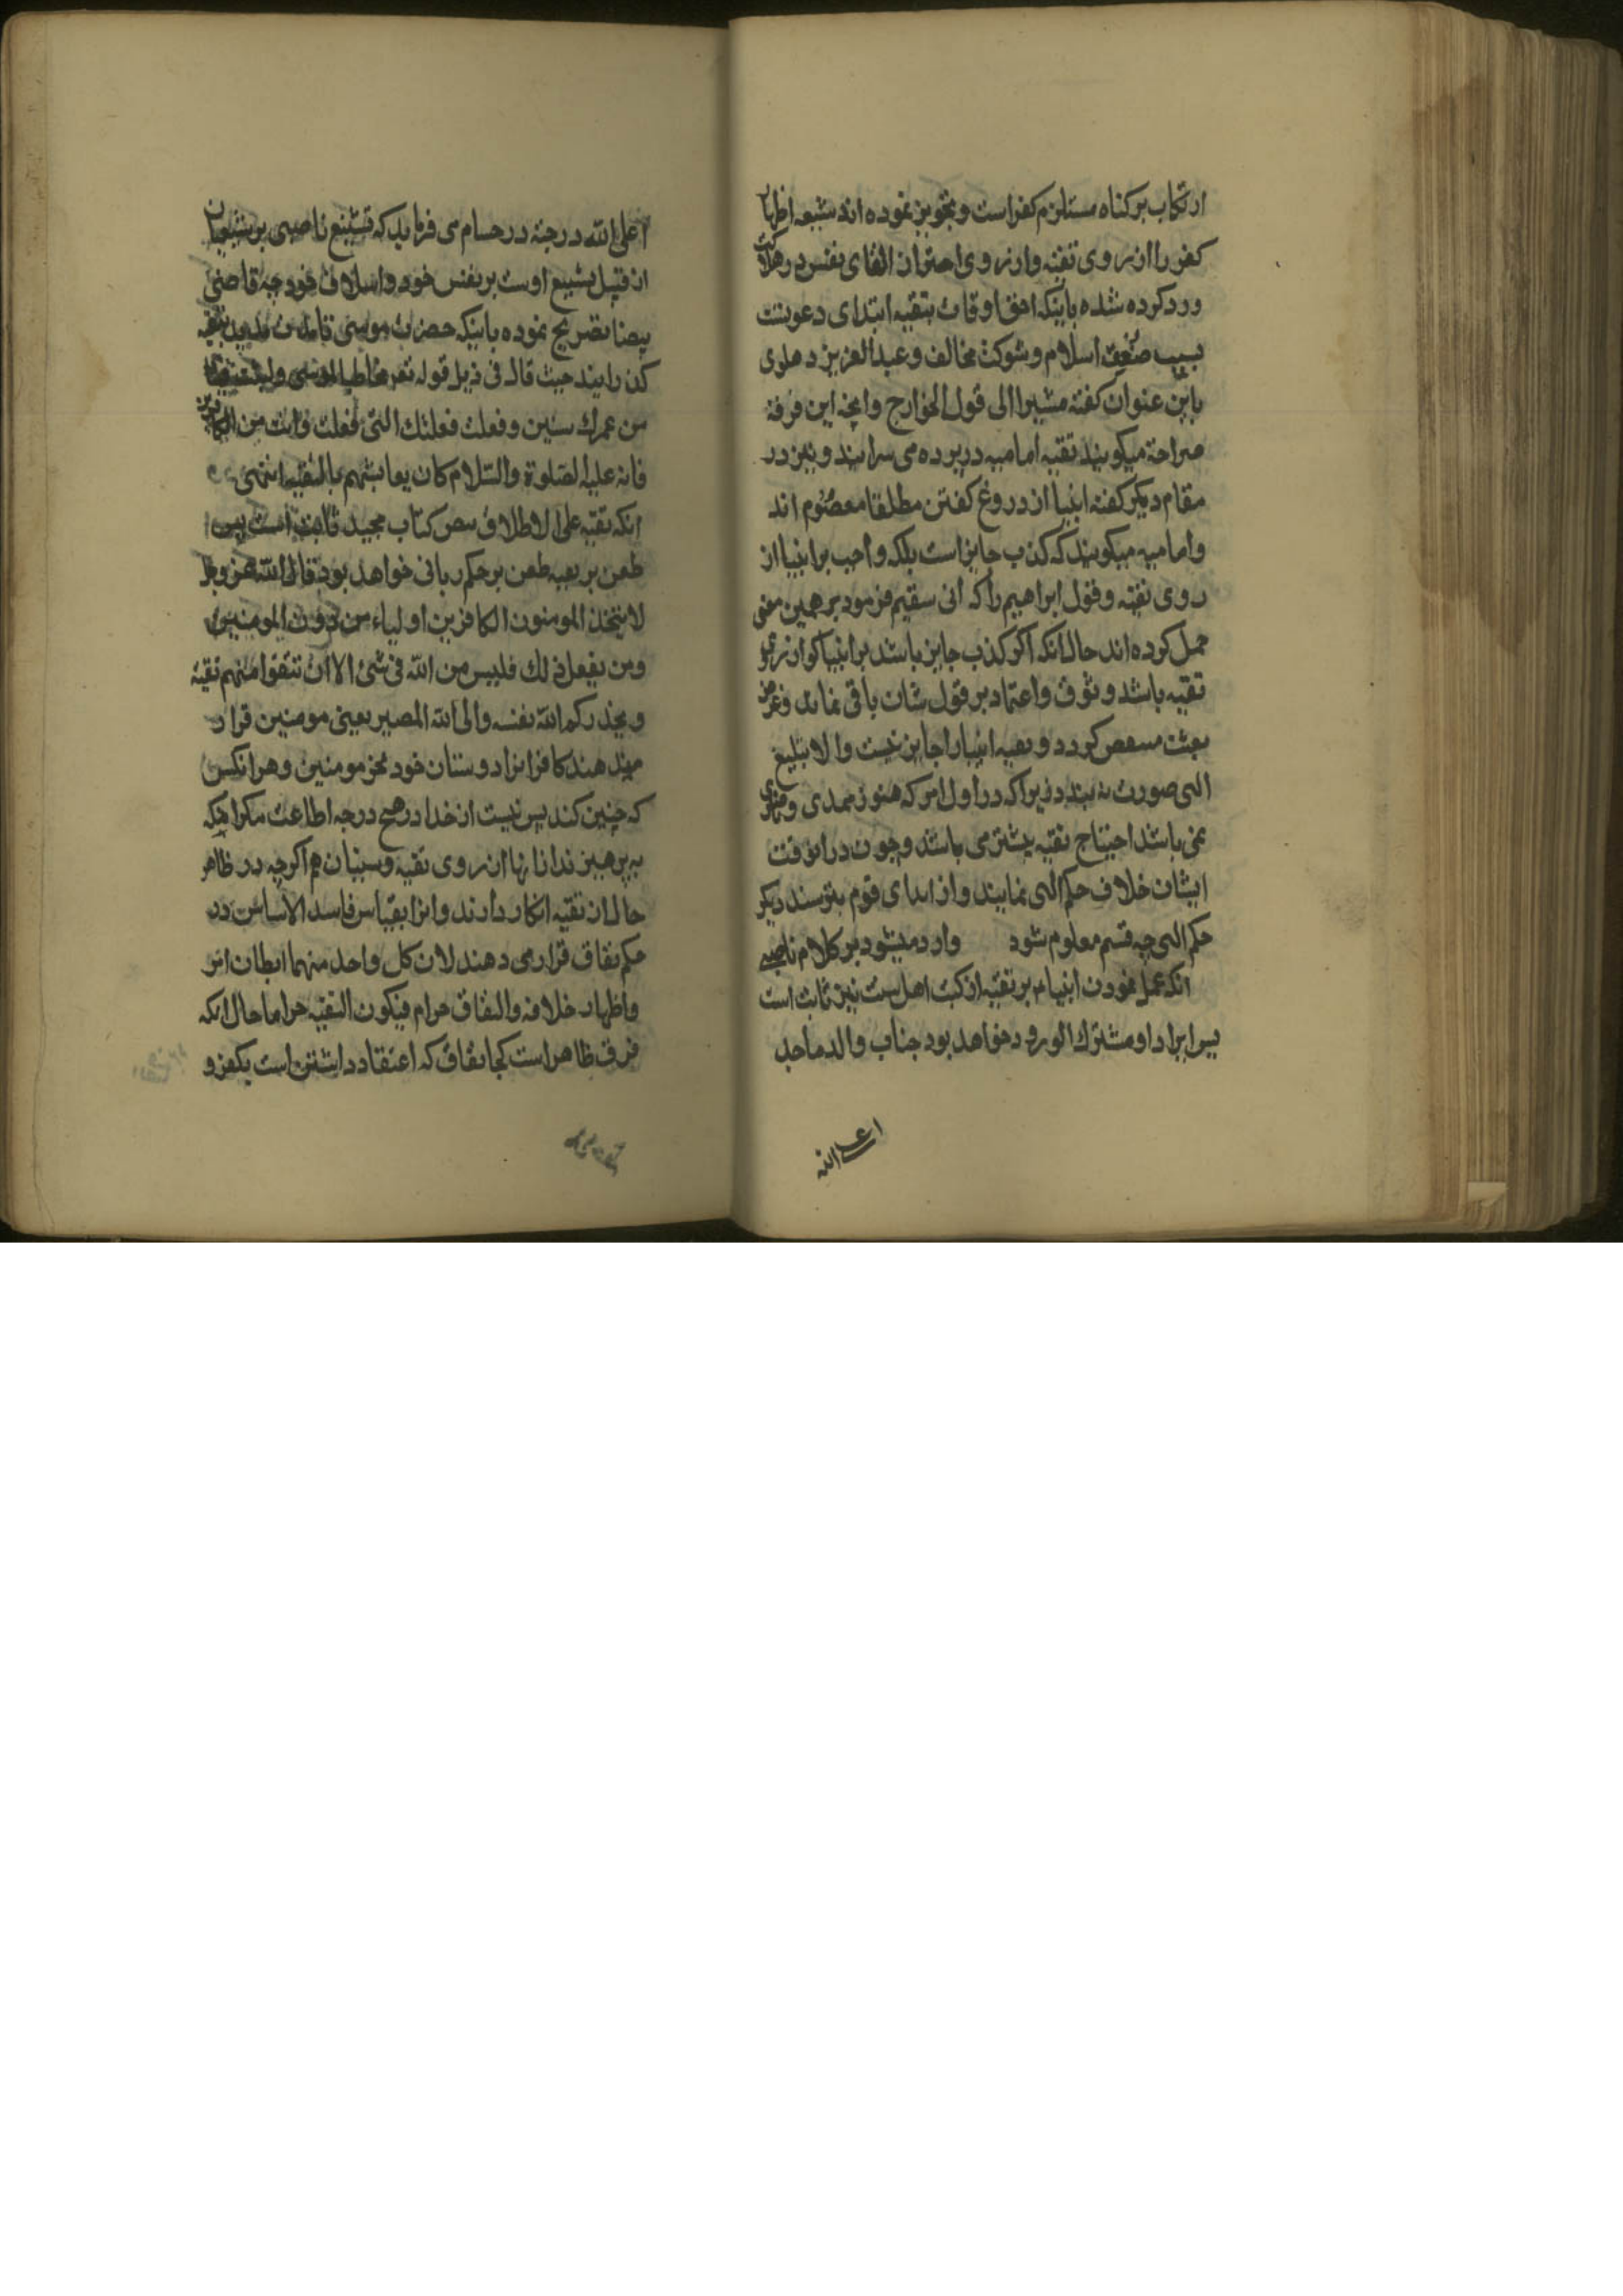 ارتکاب بر کناه مستلزم کفر است و تجویز نموده اند شیعه اظهار
کفر را از روی تقیه و از روی احتراز القای نفس در هلاکت
ورد کرده شده باینکه احق اوقات بتقیه ابتدای دعوتست
بسبب ضعف اسلام و شوکت مخالف و عبد العزیز دهلوی
باین عنوان کفته مشیرا الی قول الخوارج وانچه این فرقه
صراحة میکویند تقیه امامیه در پرده می سرایند و نیز در
مقام دیکر کفته انبیا از دروغ کفتن مطلقا معصوم اند
و امامیه میکویند که کذب جایز است بلکه واجب بر انبیا از
روی تقیه و قول ابراهیم را که انی سقیم فرمود بر همین معنی
حمل کرده اند حال انکه اکر کذب جایز باشد بر انبیا کو از روی
تقیه باشد وثوق و اعتماد بر قول شان باقی نماند و غرض
بعثت کردد و تقیه انبیا را جایز نیست والا تبلیغ
الهی صورت نه بندد زیرا که در اول امر که هنوز ممدی و
نمی باشد احتیاج تقیه بیشتر می باشد و چون در انوقت
ایشان خلاف حکم الهی نمایند و از ایذای قوم بترسند دیکر
حکم الهی چه قسم معلوم شود وارد میشود بر کلام ناصبی
انکه عمل نمودن انبیاء بر تقیه از کتب اهل سنت نیز ثابت است
پس ایراد او مشترک الورود خواهد بود جناب والد ماجد
اعلی الله
اعلی الله درجته در حسام می فرماید که تشنیع ناصبی بر شیعیان
از قبیل تشنیع اوست بر نفس خود و اسلاف خود چه قاضی
بیضا تصریح نموده باینکه حضرت موسی تا مدت مدید تقیه
کذرانیده حیث قال فی ذیل قوله تعر مخاطبا لموسی ولبثت فینا
من عمرک سنین وفعلت فعلتک التی فعلت وانت من الکافرین
فانه علیه الصلوة والسلام کان یعایشهم بالتقیه انتهی
انکه تقیه علی الاطلاق بنص کتاب مجید ثابت است پس
طعن بر تقیه طعن بر حکم ربانی خواهد بود قال الله عز وجل
لا یتخذ المومنون الکافرین اولیاء من دون المومنین
ومن یفعل ذلک فلیس من الله فی شئ الا ان تتقوا منهم تقیة
ویحذرکم الله نفسه والی الله المصیر یعنی مومنین قرار
میدهند کافرانرا دوستان خود بجز مومنین و هر انکس
که چنین کند پس نیست از خدا در هیچ درجه اطاعت مکر اینکه
به پرهیزند از انها از روی تقیه و سنیان هم اکرچه در ظاهر
حال از تقیه انکار دارند و انرا بقیاس فاسد الاساس در
حکم نفاق قرار می دهند لان کل واحد منهما ابطان امر
واظهار خلافه والنفاق حرام فیکون التقیه حراما حال انکه
فرق ظاهر است کجا نفاق که اعتقاد داشتن است بکفر و